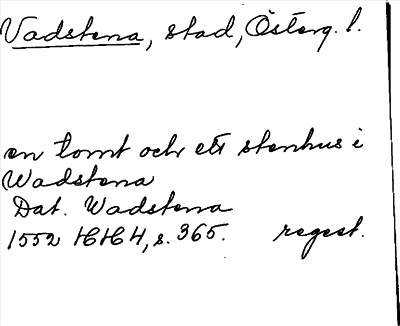 Vadstena, stad, Österg. l.
en tomt och ett stenhus i
Wadstena
Dat. Wadstena
1552 HHH, s. 365. regest.